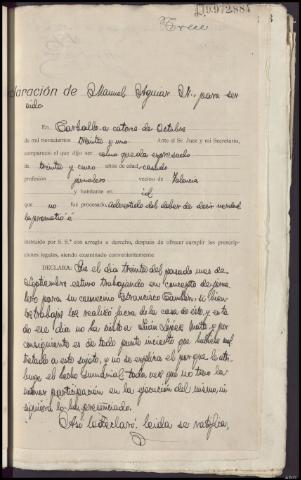 A19.972884
Trece
claración de Manuel Aguiar N. para ser
oido
En Carballo a catorce de Octubre
de mil novecientos treinta y uno Ante el Sr. Juez y mi Secretario,
compareció el que dijo ser como queda expresado
de treinta y cinco años de edad, casado
profesión jornalero vecino de Valencia
y habitante en id
que no fué procesado, advertido del deber de decir verdad
la prometió a
instruido por S. Sª con arreglo a derecho, después de ofrecer cumplir las prescrip-
ciones legales, siendo examinado convenientemente.
DECLARA: Que el día treinta del pasado mes de
Septiembre estuvo trabajando en concepto de jorna-
lero para su convecino Francisco si bien
trabajos los realizó fuera de la casa de éste, y en to-
do ese día no ha visto a y por
consiguiente es de todo punto incierto que hubiese mal-
tratado a este sujeto, y no se explica el por que le atri-
buye el hecho sumarial toda vez que no tuvo la
menor participación en la ejecución del mismo, ni
siquiera lo ha presenciado.
Así lo declaró, leida se ratifica,